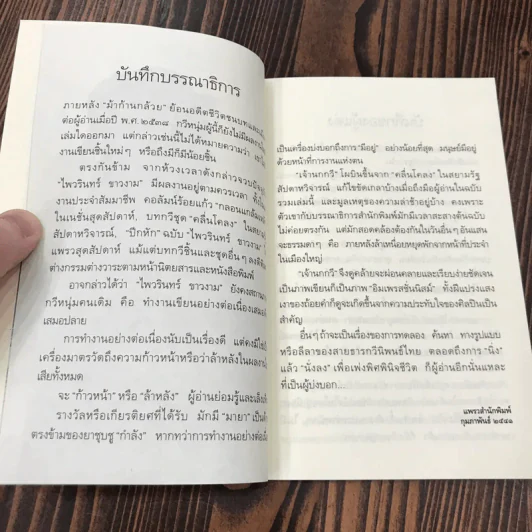 บันทึกบรรณาธิการ
ภายหลัง "ม้าก้านกล้วย" ย้อนอดีตชีวิตชนบทและ
ต่อผู้อ่านเมื่อปี พ.ศ. ๒๕๓๘ กวีหนุ่มผู้นี้ก็ยังไม่มีผลงาน
เล่มใดออกมา แต่กล่าวเช่นนี้ไม่ได้หมายความว่า
งานเขียนชิ้นใหม่ๆ หรือถึงมีก็มีน้อยชิ้น
ตรงกันข้าม จากห้วงเวลาดังกล่าวจวบปัจจุบัน
"ไพวรินทร์ ขาวงาม" มีผลงานอยู่ตามควรเวลา ทั้ง
งานประจำสัมมาชีพ คอลัมน์ร้อยแก้ว "กลอนแกล้ม
ในเนชั่นสุดสัปดาห์, บทกวีชุด "คลื่นโคลง" ในสยาม
สัปดาห์วิจารณ์, "ปีกหัก" ฉบับ "ไพวรินทร์ ขาวงาม"
แพรวสุดสัปดาห์ แม้แต่บทกวีชิ้นและชุดอื่นๆ ลงตีพิมพ์
ต่างกรรมต่างวาระตามหน้านิตยสารและหนังสือพิมพ์
อาจกล่าวได้ว่า "ไพวรินทร์ ขาวงาม" ยังคงสถานะ
กวีหนุ่มคนเดิม คือ ทำงานเขียนอย่างต่อเนื่องเสมอต้น
เสมอปลาย
การทำงานอย่างต่อเนื่องนับเป็นเรื่องดี แต่คงมิใช่
เครื่องมาตรวัดถึงความก้าวหน้าหรือว่าล้าหลังในผลงาน
เสียทั้งหมด
จะ "ก้าวหน้า" หรือ "ล้าหลัง" ผู้อ่านย่อมรู้และเล็งเห็น
รางวัลหรือเกียรติยศที่ได้รับ มักมี "มายา" เป็น
ตรงข้ามของยาชุบชู "กำลัง" หากทว่าการทำงานอย่างต่อเนื่อง
เป็นเครื่องบ่งบอกถึงการ "มีอยู่" อย่างน้อยที่สุด มนุษย์มีอยู่
ด้วยหน้าที่การงานแห่งตน
"เจ้านกกวี" โผบินขึ้นจาก "คลื่นโคลง" ในสยามรัฐ
สัปดาห์วิจารณ์ แก้ไขขัดเกลาบ้างเมื่อถึงมือผู้อ่านในฉบับ
รวมเล่มนี้ และมูลเหตุของความล่าช้าอยู่บ้าง คงเพราะ
ตัวเขากับบรรณาธิการสำนักพิมพ์มักมีเวลาสะสางต้นฉบับ
ไม่ค่อยตรงกัน แต่มักสอดคล้องต้องกันในวันอื่นๆอันแสน
จะธรรมดาๆ คือ ภายหลังล้าเหนื่อยหยุดพักจากหน้าที่ประจำ
ในเมืองใหญ่
"เจ้านกกวี" จึงดูคล้ายจะผ่อนคลายและเรียบง่ายชัดเจน
เป็นภาพเขียนก็เป็นภาพ "อิมเพรสชั่นนิสม์" ทั้งมีแปรงแสง
เงาของถ้อยคำก็ดูจะเกิดขึ้นจากความประทับใจของศิลปินเป็น
สำคัญ
อื่นๆ ถ้าจะเป็นเรื่องของการทดลอง ค้นหา ทางรูปแบบ
หรือลีลาของสายธารกวีนิพนธ์ไทย ตลอดถึงการ "นิ่ง"
แล้ว "นั่งลง" เพื่อเพ่งพิศพินิจชีวิต ก็ผู้อ่านอีกนั่นแหละ
ที่เป็นผู้บ่งบอก...
แพรวสำนักพิมพ์
กุมภาพันธ์ ๒๕๔๑